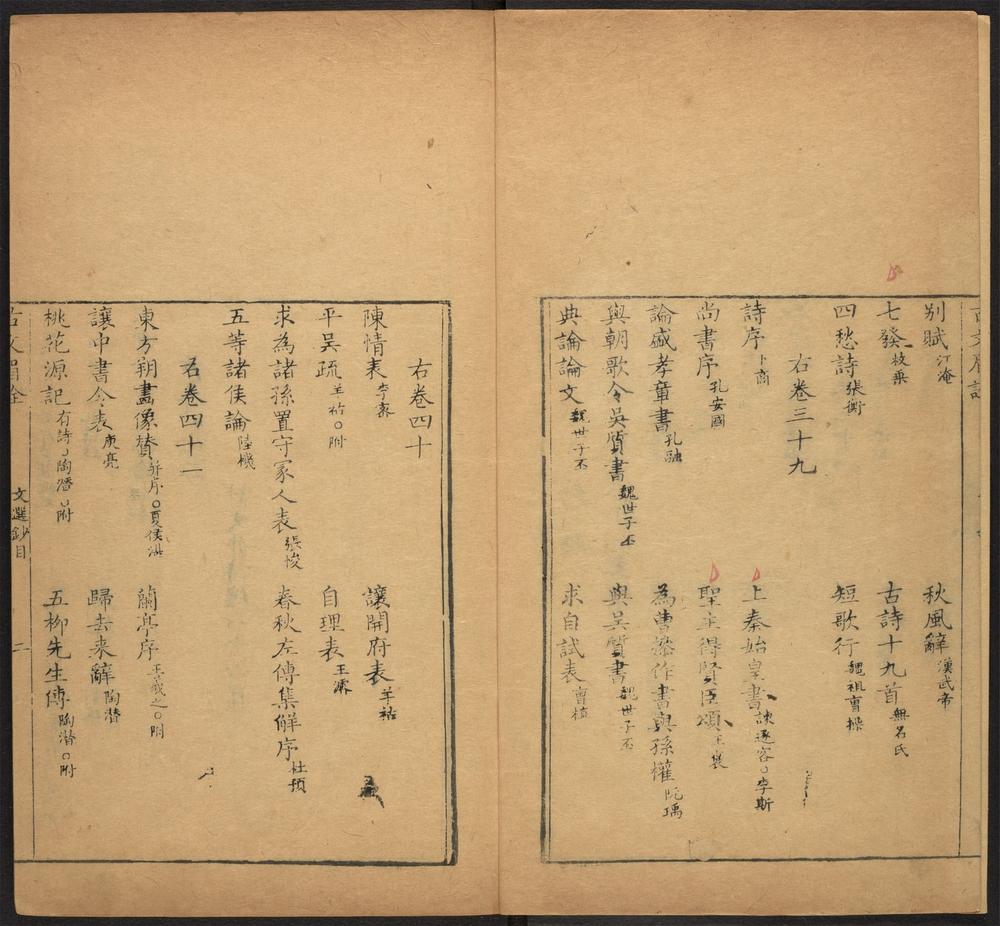 別賦 江淹 秋風辭 漢武帝
七發 枚乘 古詩十九首 無名氏
四愁詩 張衡 短歌行 魏祖曹操
右卷三十九
詩序 卜商 上秦始皇書 諫逐客○李斯
尚書序 孔安國 聖主得賢臣頌 王襃
論盛孝章書 孔融 為曹操作書與孫權 阮瑀
與朝歌令吳質書 魏世子丕 與吳質書 魏世子丕
典論論文 魏世子丕 求自試表 曹植
右卷四十
陳情表 李密 讓開府表 羊祜
平吳疏 羊祜○附 自理表 王濬
求為諸孫置守冢人表 張悛 春秋左傳集解序 杜預
五等諸侯論 陸機
右卷四十一
東方朔畫像贊 并序○夏侯湛 蘭亭序 王羲之○附
讓中書令表 庾亮 歸去来辭 陶潛
桃花源記 有詩○陶潛○附 五柳先生傳 陶潛○附
文選鈔目 二